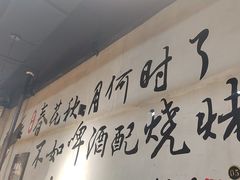 春花秋月何时了
不如啤酒配烧烤